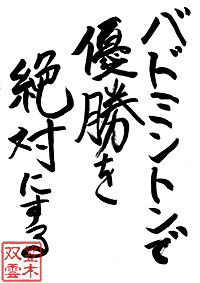 バドミントンで
優勝を
絶対にする
双雲